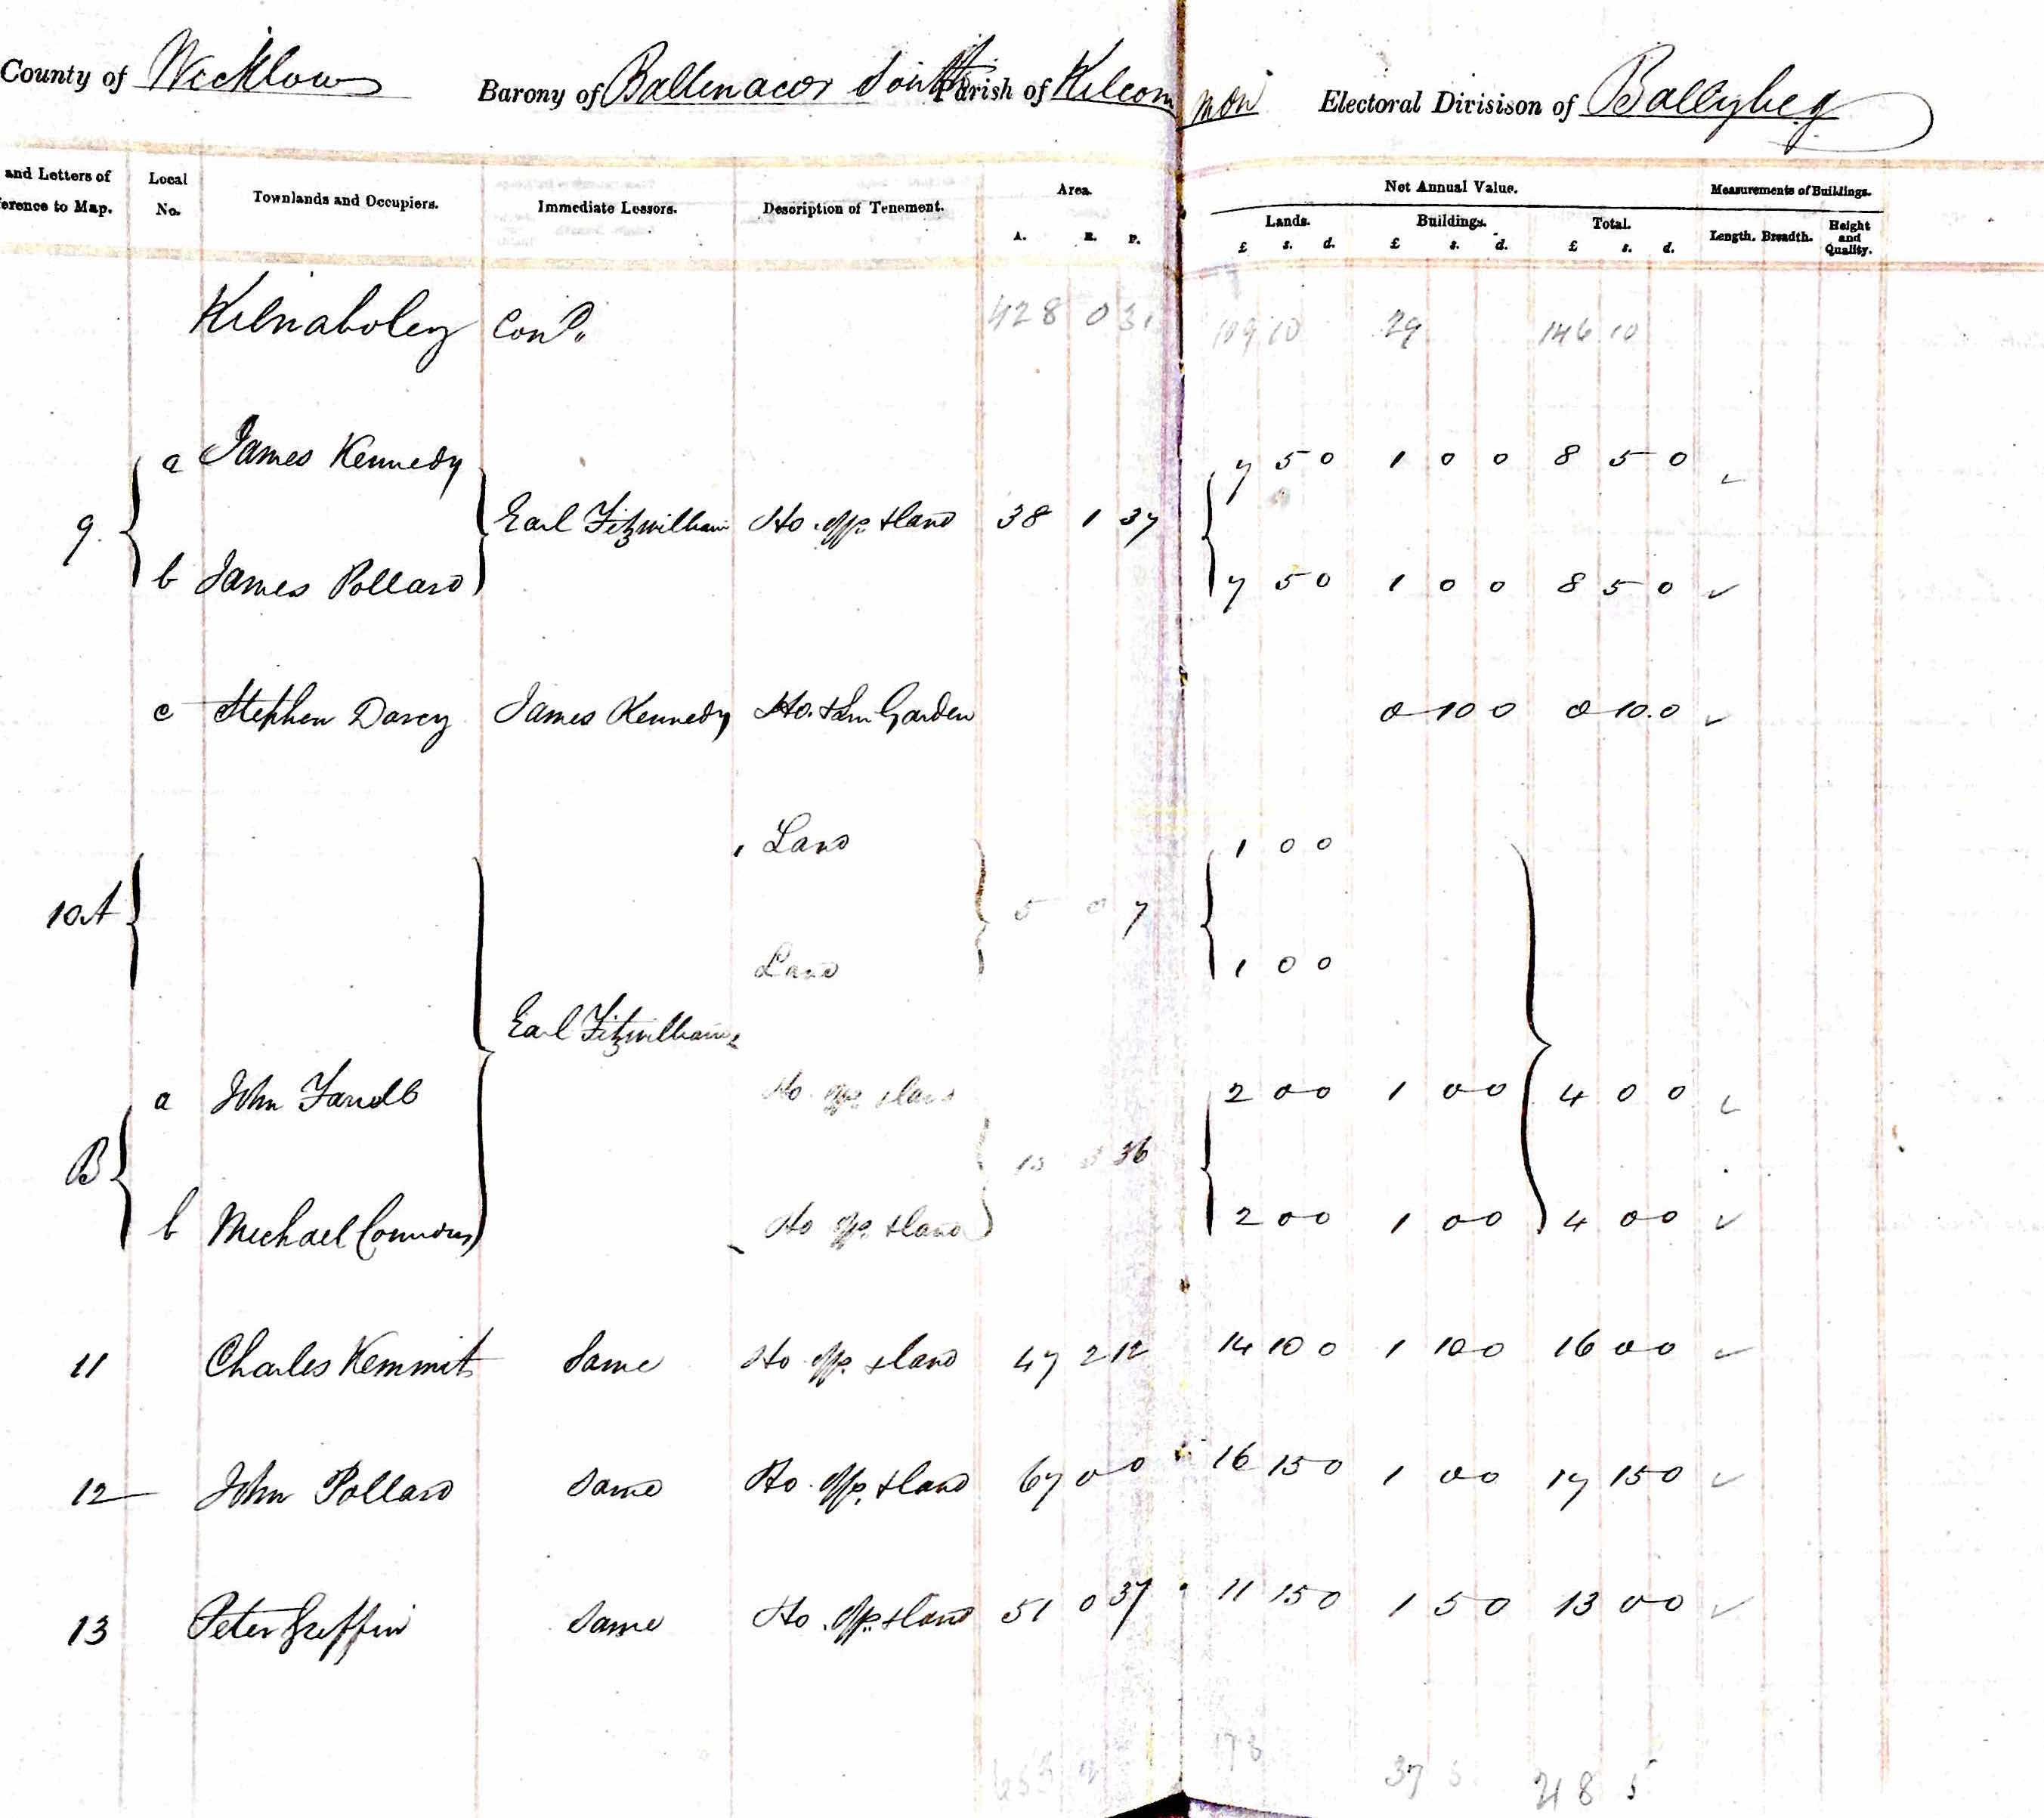 County of Wicklow Barony of Ballinacor South Parish of Kilcommon Electoral Divisison of Ballybeg
and Letters of Local Townlands and Occupiers. Immediate Lessors. Description of Tenement. Area. Net Annual Value. Measurements of Buildings.
erence to Map. No. A. R. P. Lands. Buildings. Total. Length. Breadth. Height and Quality.
£ s. d. £ s. d. £ s. d.
Kilnaboley Cond. 428 0 31 109 10 29 146 10
a James Kennedy 7 5 0 1 0 0 8 5 0
9. Earl Fitzwilliam Ho. offs. & land 38 1 37
b James Pollard 7 5 0 1 0 0 8 5 0
c Stephen Darcy James Kennedy Ho. & Sm Garden 0 10 0 0 10.0
Land 1 0 0
10A 5 0 7
Land 1 0 0
Earl Fitzwilliam
a John Ho. offs. & land 2 0 0 1 0 0 4 0 0
B 36
b Michael Connors Ho offs. & land 2 0 0 1 0 0 4 0 0
11 Charles Kemmit Same Ho offs. & land 47 2 12 14 10 0 1 10 0 16 0 0
12 John Pollard Same Ho. offs. & land 67 0 0 16 15 0 1 0 0 17 15 0
13 Peter Griffin Same Ho. offs. & land 51 0 37 11 15 0 1 5 0 13 0 0
173 37 5 5